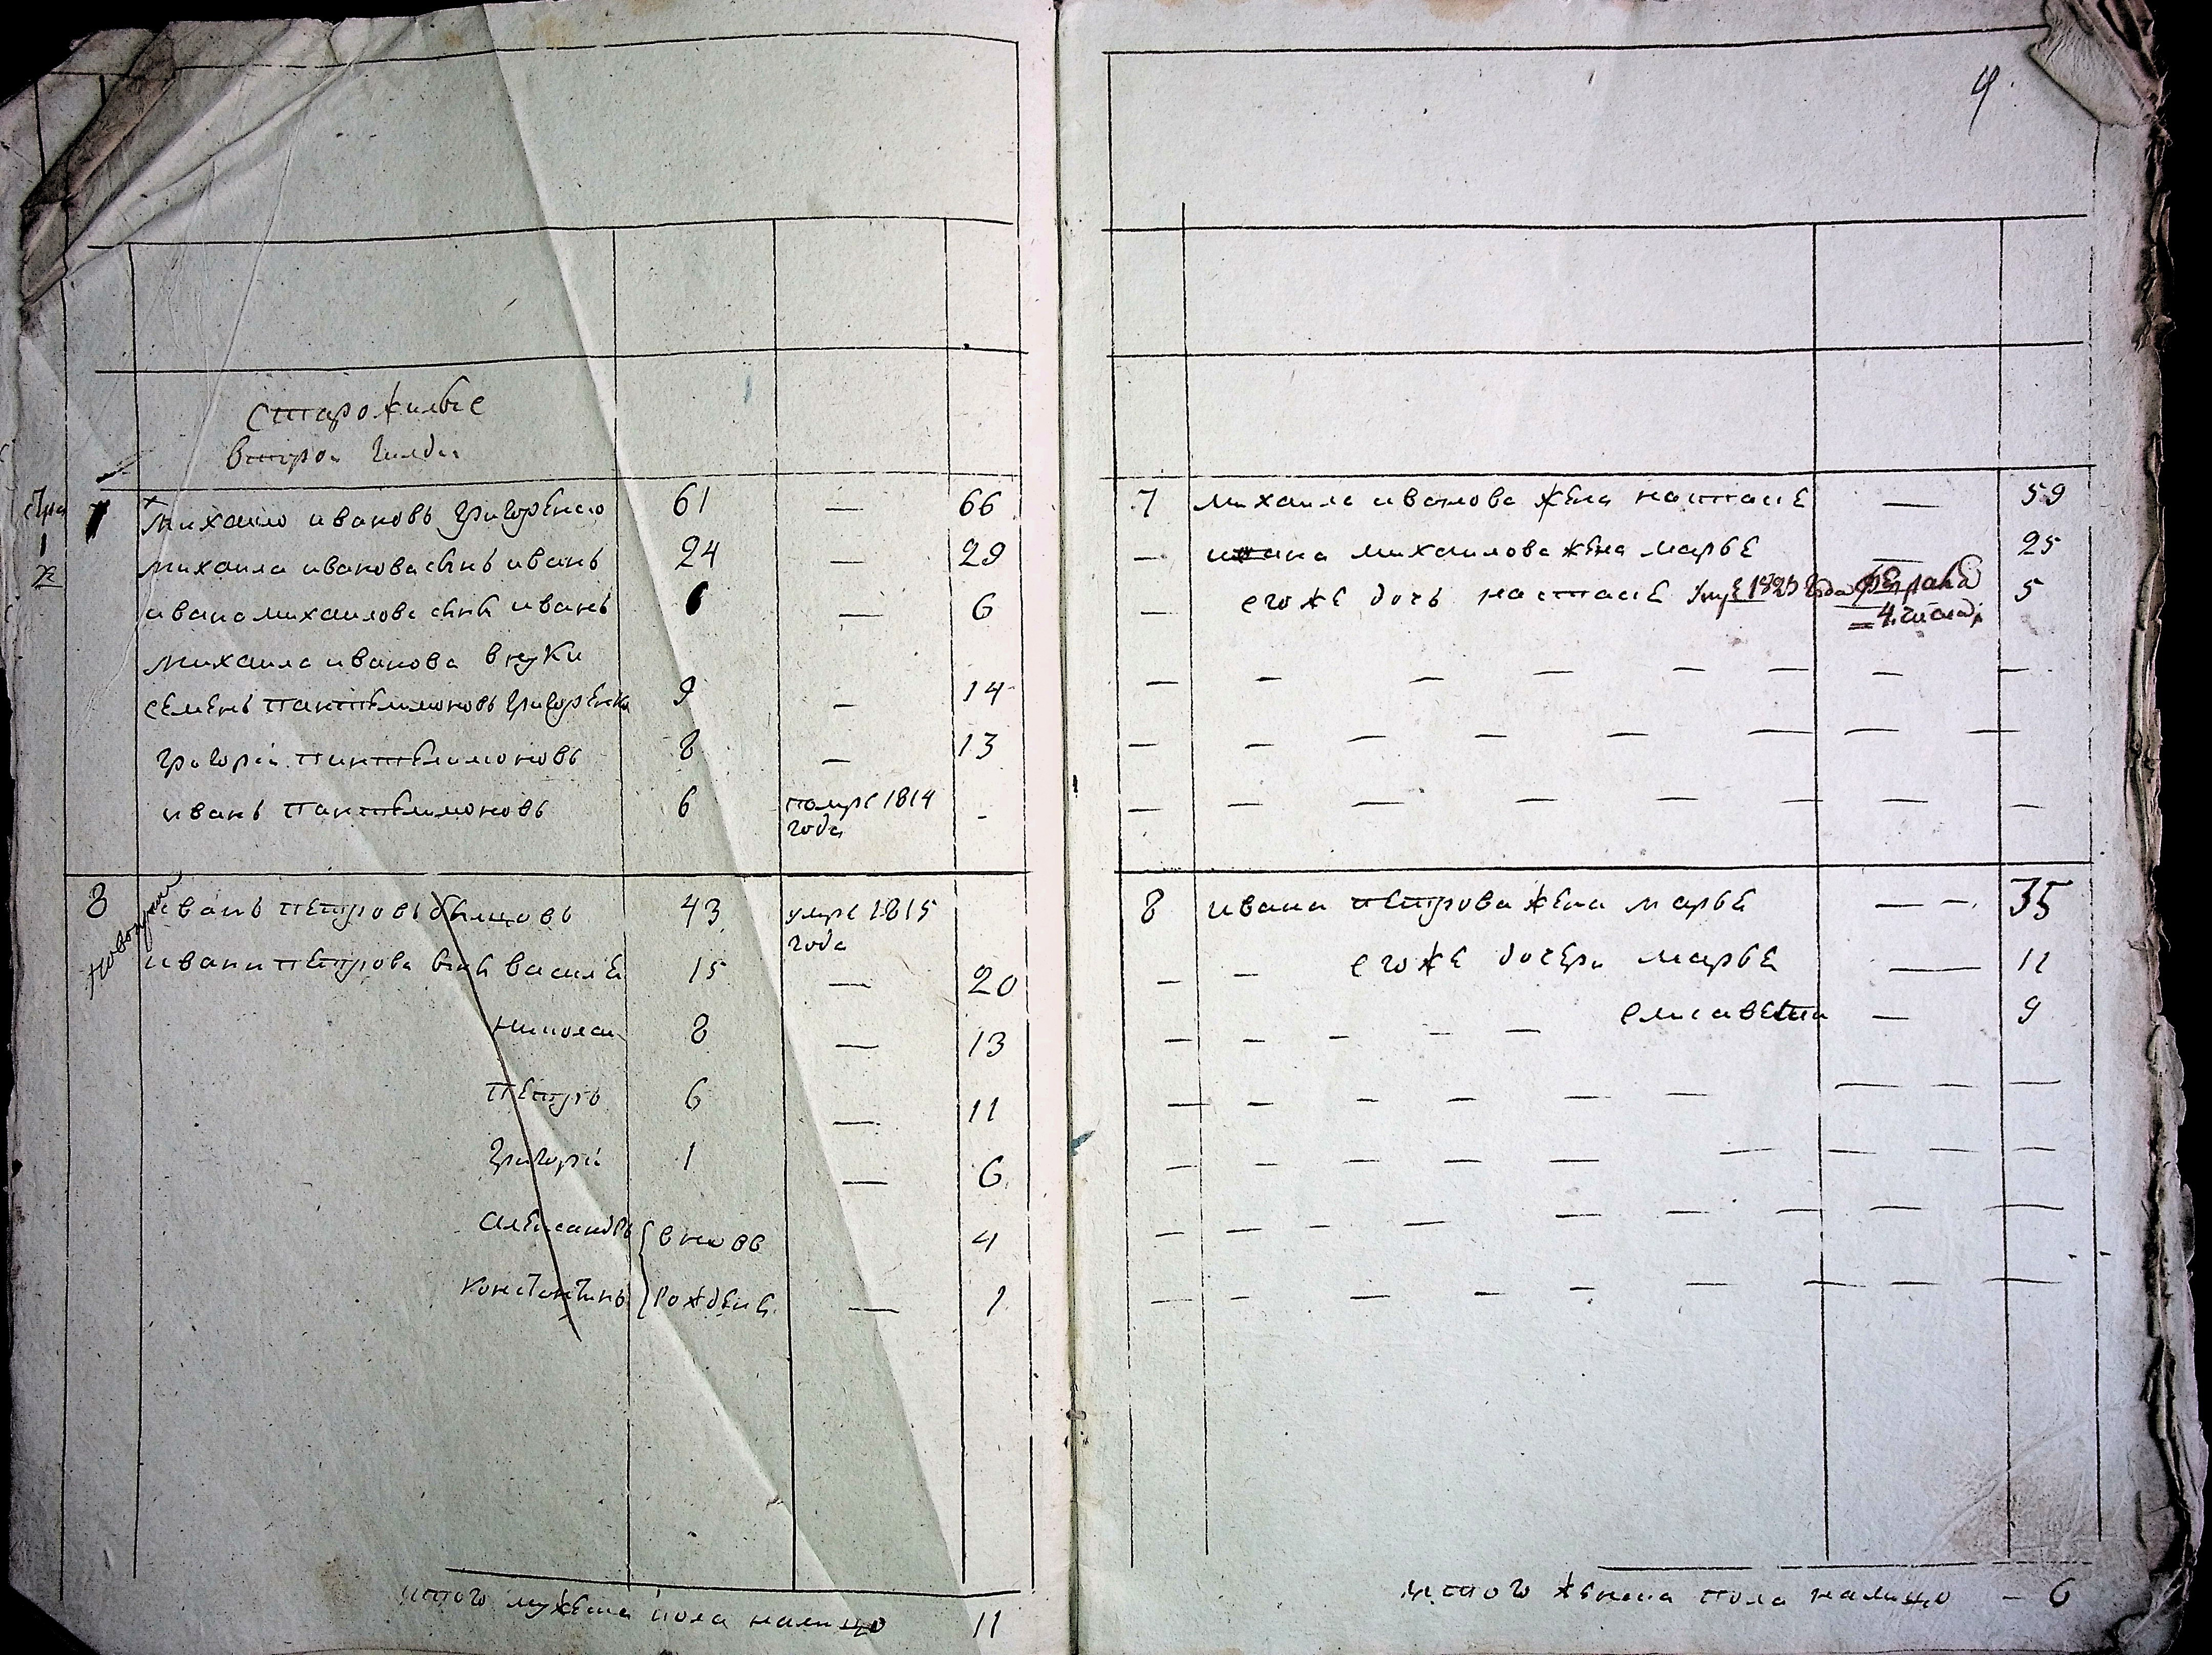 старожилые
второй гилдіи
7 Михаило ивановъ григоренко 61 — 66
михаила иванова сынъ иванъ 24 — 29
ивана михаилова сынъ иванъ 1 — 6
михаила иванова внуки
семенъ пантелимоновъ григоренко 9 — 14
григорій пантелимоновъ 8 — 13
иванъ пантелимоновъ 6 помре 1814 года -
8 иванъ петровъ 43 умре 1815 года
ивана петрова сынъ василей 15 — 20
николай 8 — 13
петръ 6 — 11
григорій 1 — 6
александръ вновь 4
константинъ рожденъ — 1
итого мужеска пола налицо 11
7 михаила иванова жена настасе — 59
— ивана михаилова жена марье — 25
— егоже дочь настасе 5
— — — — — — — —
— — — — — — — —
— — — — — — — —
8 ивана петрова жена марье — — 35
— — егоже дочери марье — 11
— — — — — елисавета — 9
— — — — — — — — —
— — — — — — — — —
— — — — — — — —
— — — — — — — — —
итого женска пола налицо — 6